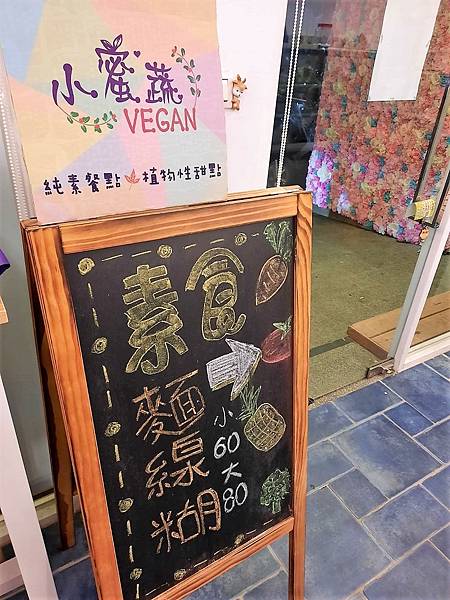 小蜜蔬
VEGAN
純素餐點 植物性甜點
素食
麵線糊
小60大80